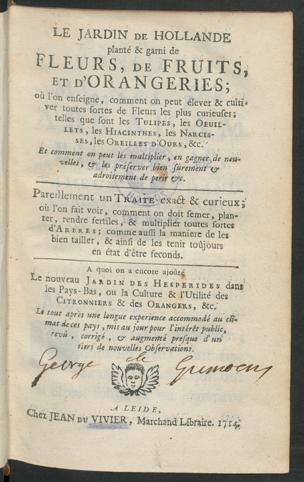 LE JARDIN DE HOLLANDE
planté & garni de
FLEURS, DE FRUITS,
ET D'ORANGERIES;
où l'on enseigne, comment on peut élever & culti-
ver toutes sortes de Fleurs les plus curieuses;
telles que sont les TULIPES, les OEUIL-
LETS, les HIACINTHES, les NARCIS-
SES, les OREILLES D'OURS, &c.
Et comment on peut les multiplier, en gagner de nou-
velles, & les préserver bien surement &
adroitement de perir &c.
Pareillement un TRAITE exact & curieux;
où l'on fait voir, comment on doit semer, plan-
ter, rendre fertiles, & multiplier toutes sortes
d'ARBRES; comme aussi la maniere de les
bien tailler, & ainsi de les tenir toûjours
en état d'être feconds.
A quoi on a encore ajoûté
Le nouveau JARDIN DES HESPERIDES dans
les Pays-Bas, ou la Culture & l'Utilité des
CITRONNIERS & des ORANGERS, &c.
Le tout après une longue experience accommodé au cli-
mat de ces pays, mis au jour pour l'intérêt public,
revû, corrigé, & augmenté presque d'un
tiers de nouvelles Observations.
George de
A LEIDE,
Chez JEAN DU VIVIER, Marchand Libraire. 1714.